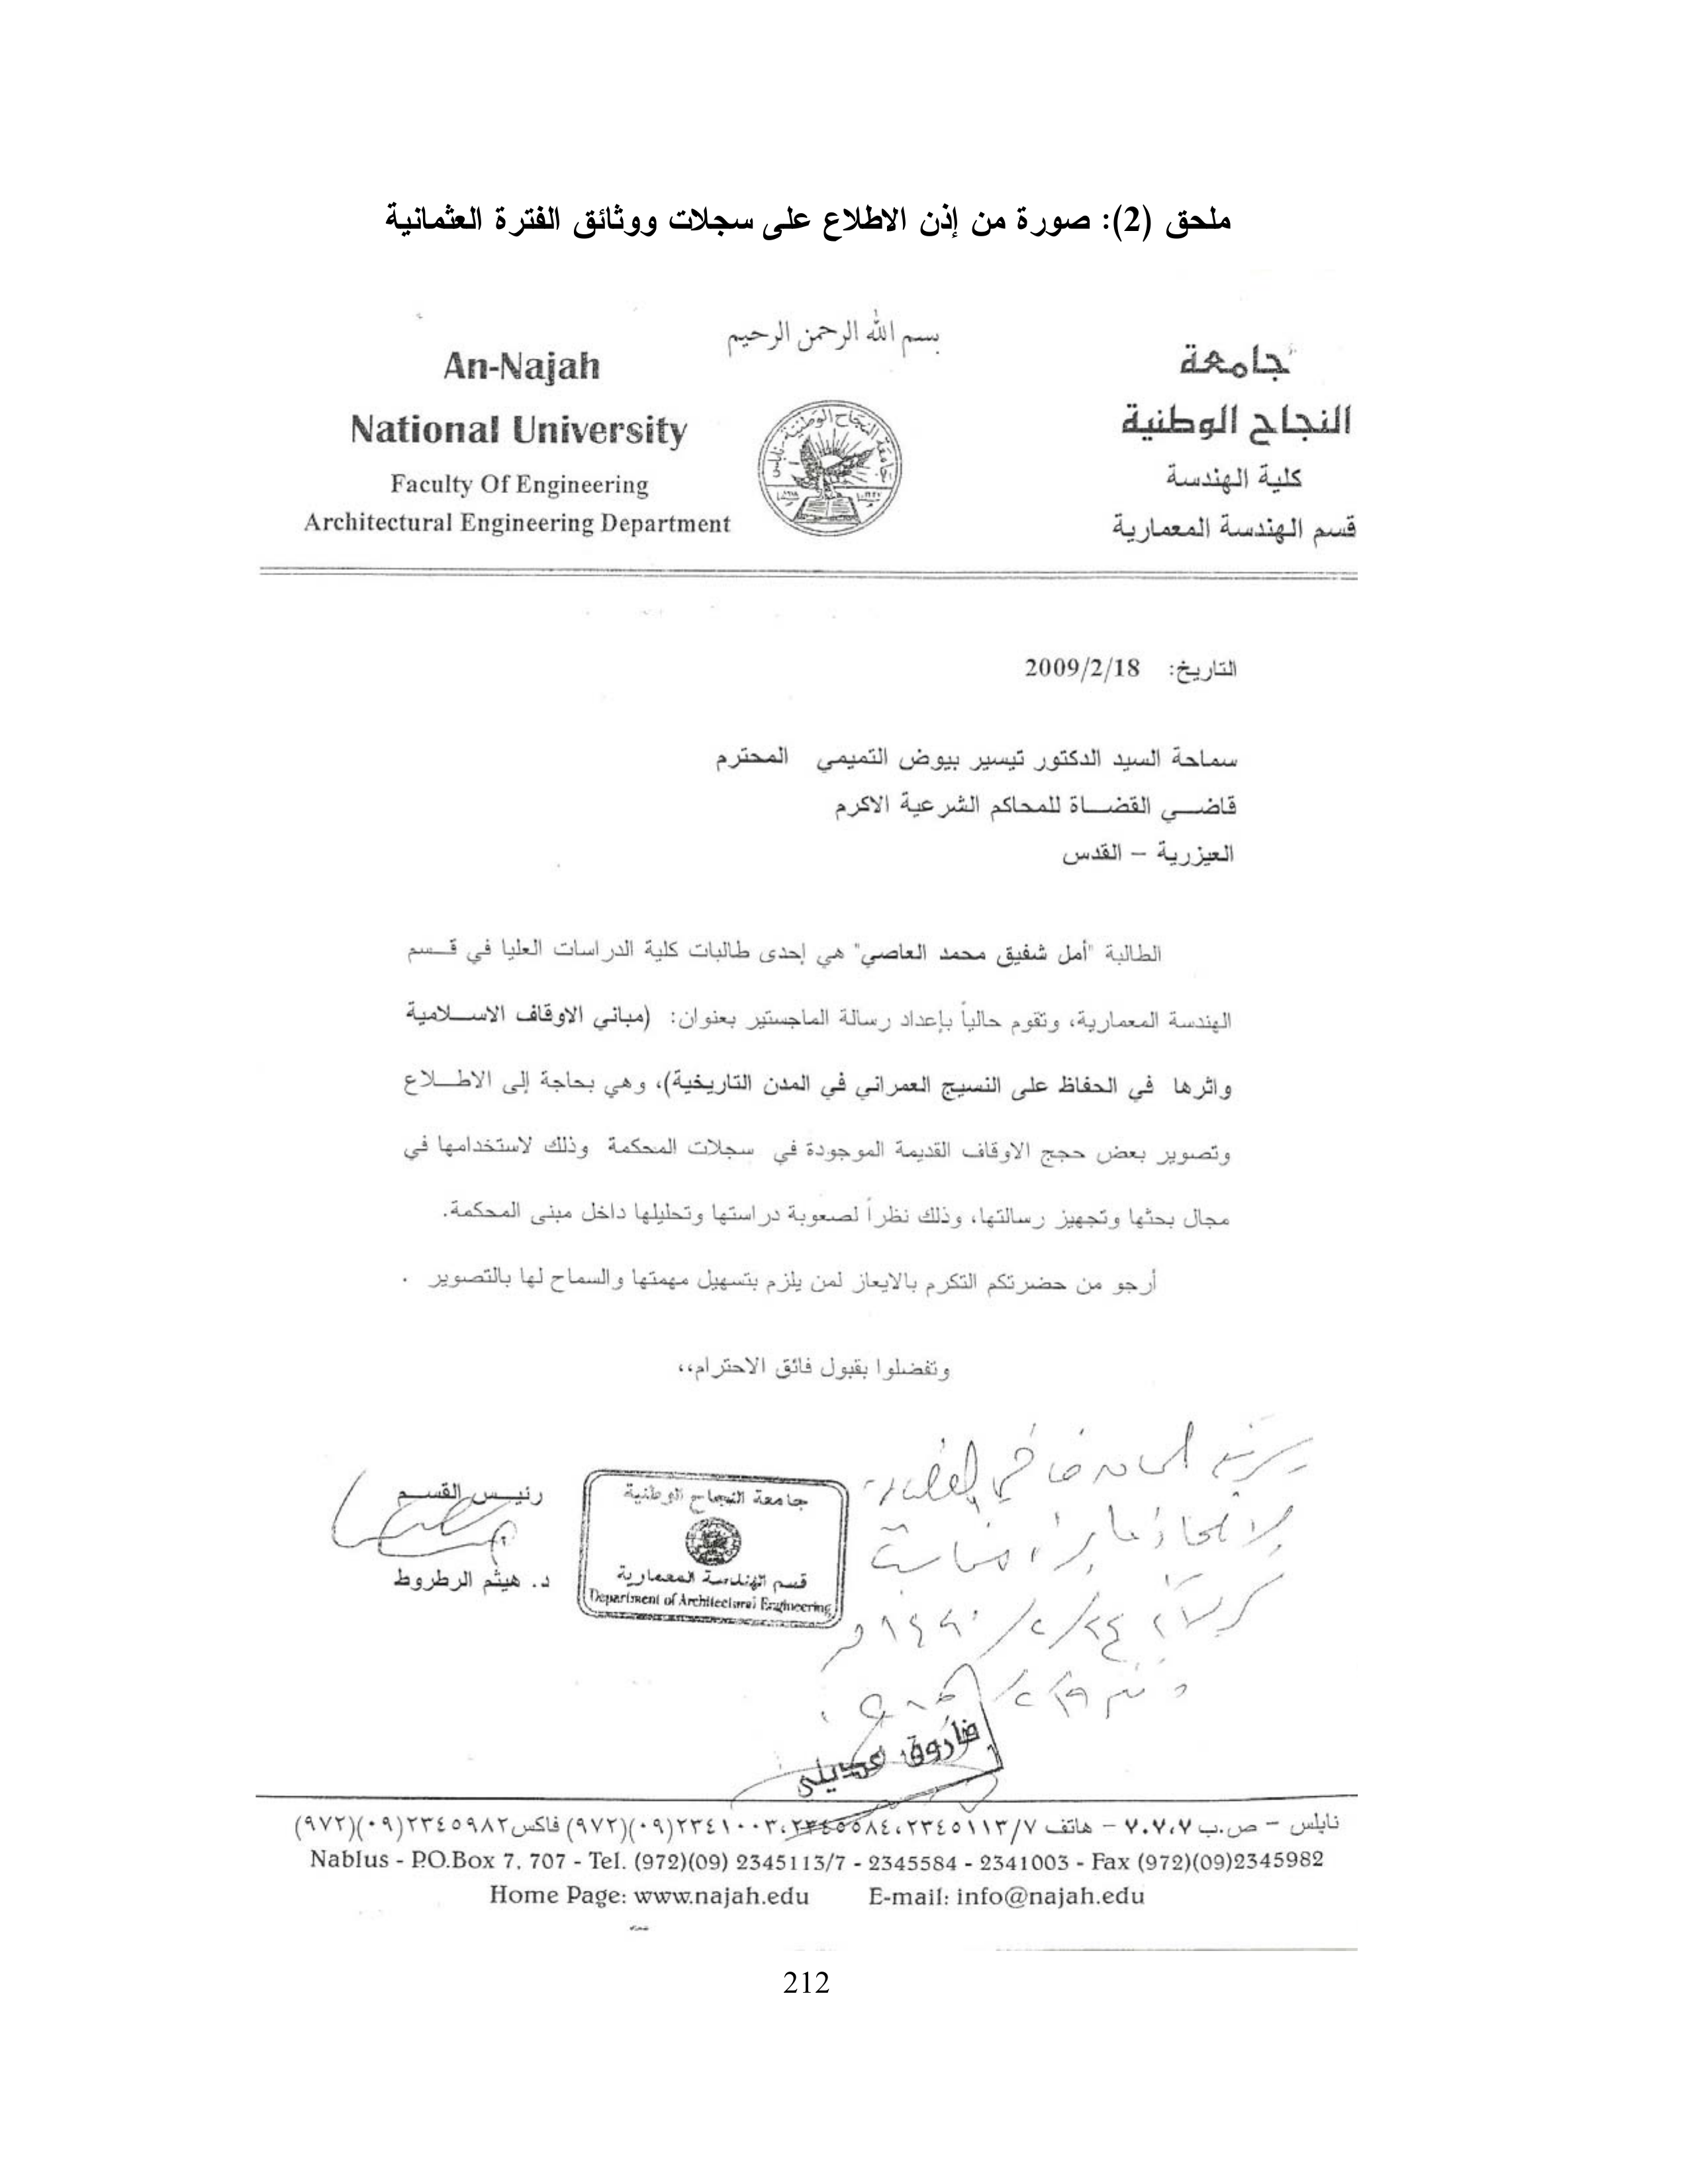 ملحق (2): صورة من إذن الاطلاع على سجلات ووثائق الفترة العثمانية
بسم الله الرحمن الرحيم
جامعة
النجاح الوطنية
كلية الهندسة
قسم الهندسة المعمارية
An-Najah
National University
Faculty Of Engineering
Architectural Engineering Department
التاريخ: 2009/2/18
سماحة السيد الدكتور تيسير بيوض التميمي المحترم
قاضي القضاة للمحاكم الشرعية الاكرم
العيزرية – القدس
الطالبة "أمل شفيق محمد العاصي" هي إحدى طالبات كلية الدراسات العليا في قسم
الهندسة المعمارية، وتقوم حالياً بإعداد رسالة الماجستير بعنوان: (مباني الاوقاف الاسلامية
واثرها في الحفاظ على النسيج العمراني في المدن التاريخية)، وهي بحاجة إلى الاطلاع
وتصوير بعض حجج الاوقاف القديمة الموجودة في سجلات المحكمة وذلك لاستخدامها في
مجال بحثها وتجهيز رسالتها، وذلك نظراً لصعوبة دراستها وتحليلها داخل مبنى المحكمة.
أرجو من حضرتكم التكرم بالايعاز لمن يلزم بتسهيل مهمتها والسماح لها بالتصوير .
وتفضلوا بقبول فائق الاحترام،،
رئيس القسم
د. هيثم الرطروط
جامعة النجاح الوطنية
قسم الهندسة المعمارية
Department of Architectural Engineering
قاضي القضاة
لاتخاذ ما يراه مناسبا
٢٤/٢/١٤٣٠
نابلس – ص.ب ٧،٧٠٧ – هاتف ٢٣٤٥١١٣/٧،٢٣٤٥٥٨٤،٢٣٤١٠٠٣(٠٩)(٩٧٢) فاكس٢٣٤٥٩٨٢(٠٩)(٩٧٢)
Nablus - P.O.Box 7, 707 - Tel. (972)(09) 2345113/7 - 2345584 - 2341003 - Fax (972)(09)2345982
Home Page: www.najah.edu E-mail: info@najah.edu
212